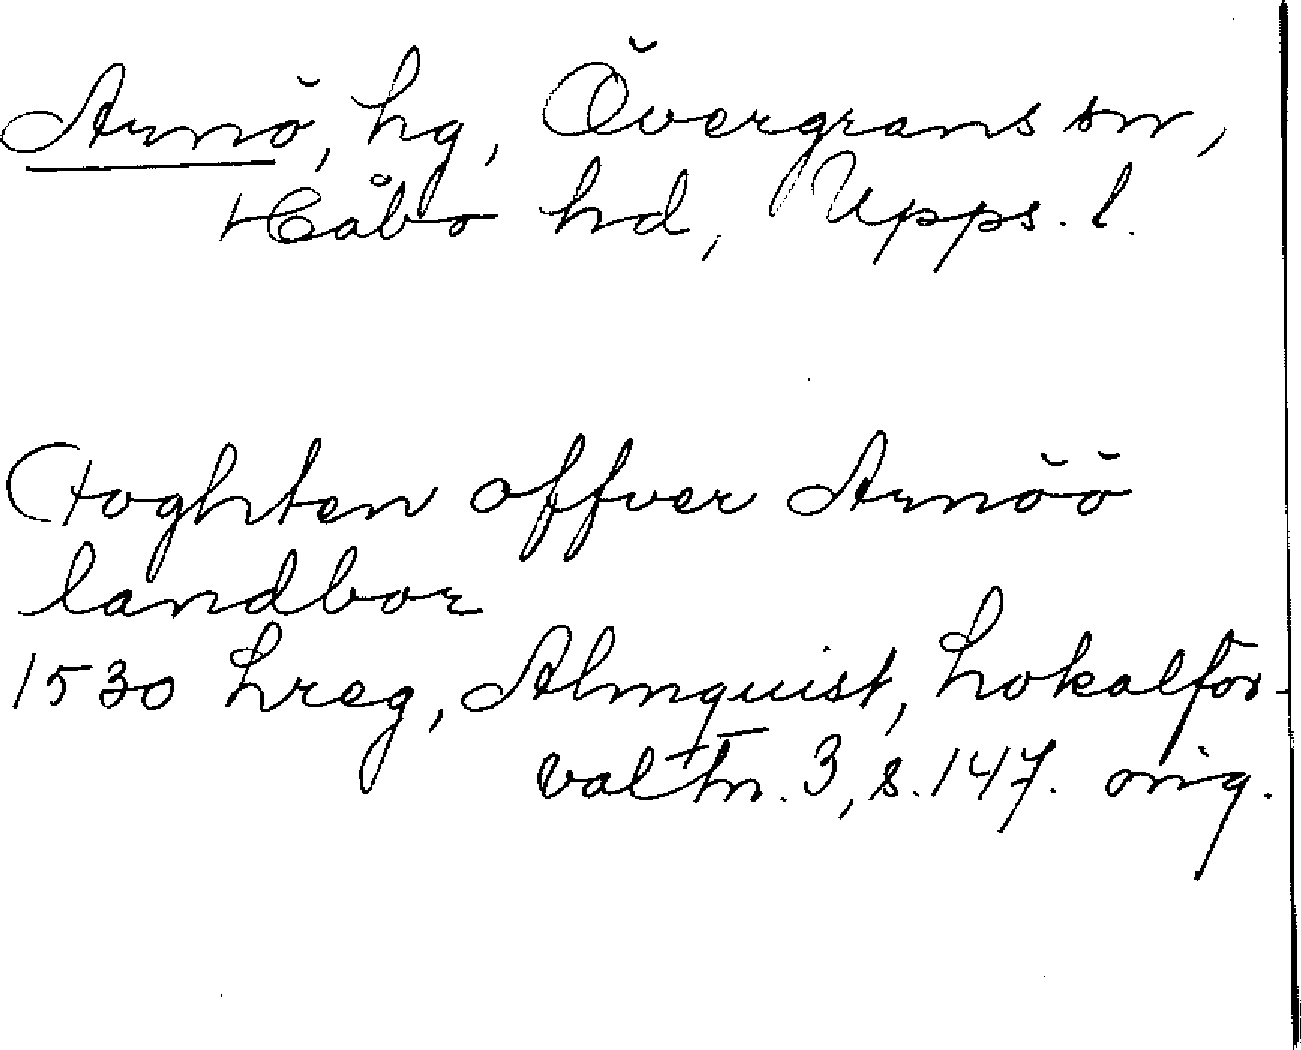 Arnö, hg, Övergrans sn,
Håbo hd, Upps. l.
Foghten offver Arnöö
landbor
1530 Lreg, Almquist, Lokalför-
valtn. 3, s. 147. orig.